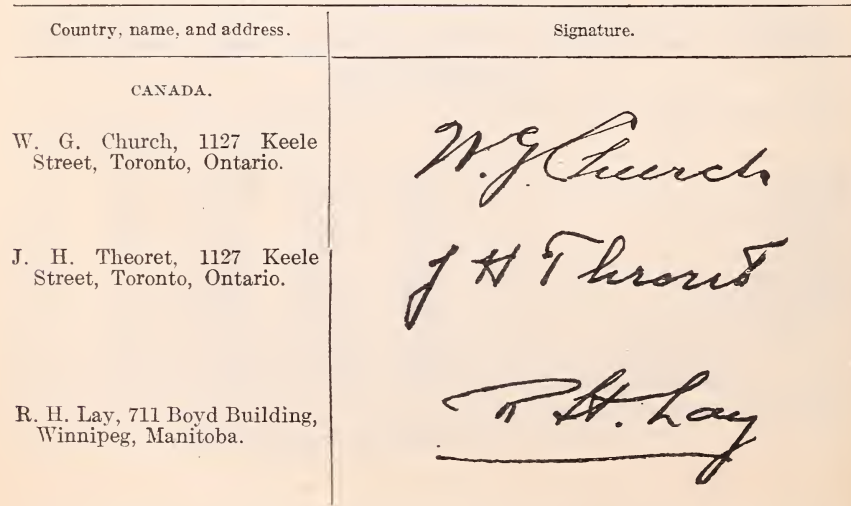 Country, name, and address.
Signature.
CANADA.
W. G. Church, 1127 Keele
Street, Toronto, Ontario.
W. G. Church
J. H. Theoret, 1127 Keele
Street, Toronto, Ontario.
J H Theoret
R. H. Lay, 711 Boyd Building,
Winnipeg, Manitoba.
R. H. Lay